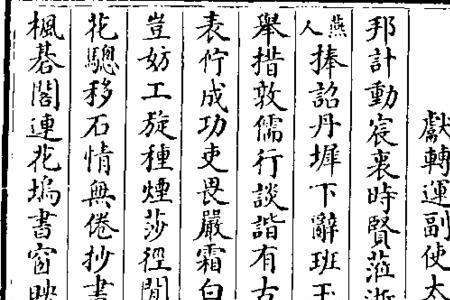 獻轉運副使太
邦計動宸衷時賢蒞浙
燕人捧詔丹墀下辭班玉
舉措敦儒行談諧有古
表佇成功吏畏嚴霜白
豈妨工旋種煙莎徑閒
花驄移石情無倦抄書
楓碁閣連花塢書窗映